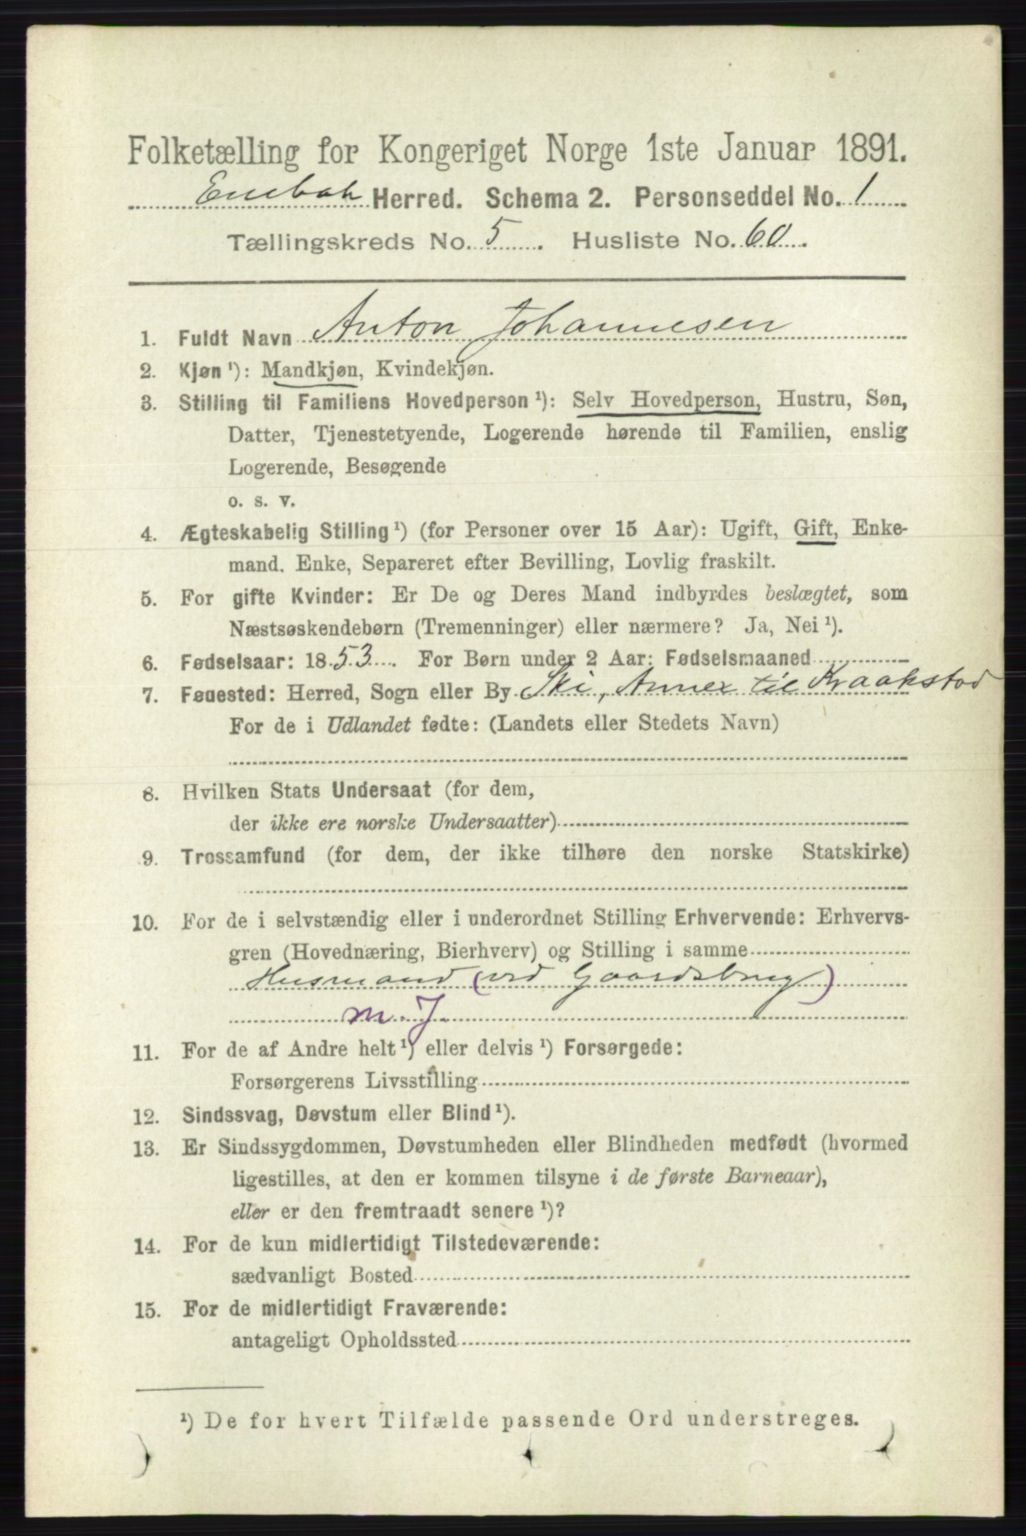 Folketælling for Kongeriget Norge 1ste Januar 1891.
Enebak Herred. Schema 2. Personseddel No. 1
Tællingskreds No. 5. Husliste No. 60.
1. Fuldt Navn Anton Johannesen
2. Kjøn ¹): Mandkjøn, Kvindekjøn.
3. Stilling til Familiens Hovedperson ¹): Selv Hovedperson, Hustru, Søn,
Datter, Tjenestetyende, Logerende hørende til Familien, enslig
Logerende, Besøgende
o. s. v.
4. Ægteskabelig Stilling ¹) (for Personer over 15 Aar): Ugift, Gift, Enke-
mand. Enke, Separeret efter Bevilling, Lovlig fraskilt.
5. For gifte Kvinder: Er De og Deres Mand indbyrdes beslægtet, som
Næstsøskendebørn (Tremenninger) eller nærmere? Ja, Nei ¹).
6. Fødselsaar: 1853. For Børn under 2 Aar: Fødselsmaaned
7. Fødested: Herred, Sogn eller By Ski, Annex til Kraakstad
For de i Udlandet fødte: (Landets eller Stedets Navn)
8. Hvilken Stats Undersaat (for dem,
der ikke ere norske Undersaatter)
9. Trossamfund (for dem, der ikke tilhøre den norske Statskirke)
10. For de i selvstændig eller i underordnet Stilling Erhvervende: Erhvervs-
gren (Hovednæring, Bierhverv) og Stilling i samme
Husmand (ved Gaardsbrug)
m. J.
11. For de af Andre helt ¹) eller delvis ¹) Forsørgede:
Forsørgerens Livsstilling
12. Sindssvag, Døvstum eller Blind ¹).
13. Er Sindssygdommen, Døvstumheden eller Blindheden medfødt (hvormed
ligestilles, at den er kommen tilsyne i de første Barneaar),
eller er den fremtraadt senere ¹)?
14. For de kun midlertidigt Tilstedeværende:
sædvanligt Bosted
15. For de midlertidigt Fraværende:
antageligt Opholdssted
¹) De for hvert Tilfælde passende Ord understreges.